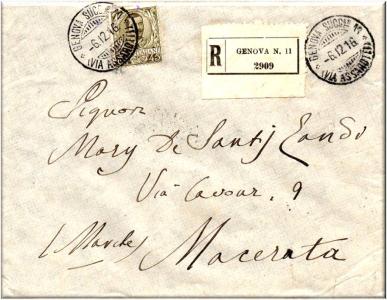 GENOVA SUCCLE 11
-6.12.16
(VIA ASSAROTTI)
45
R
GENOVA N. 11
2909
GENOVA SUCCLE 11
-6.12.16
(VIA ASSAROTTI)
Signor
Mary De Santis
Via Cavour. 9
(Marche) Macerata